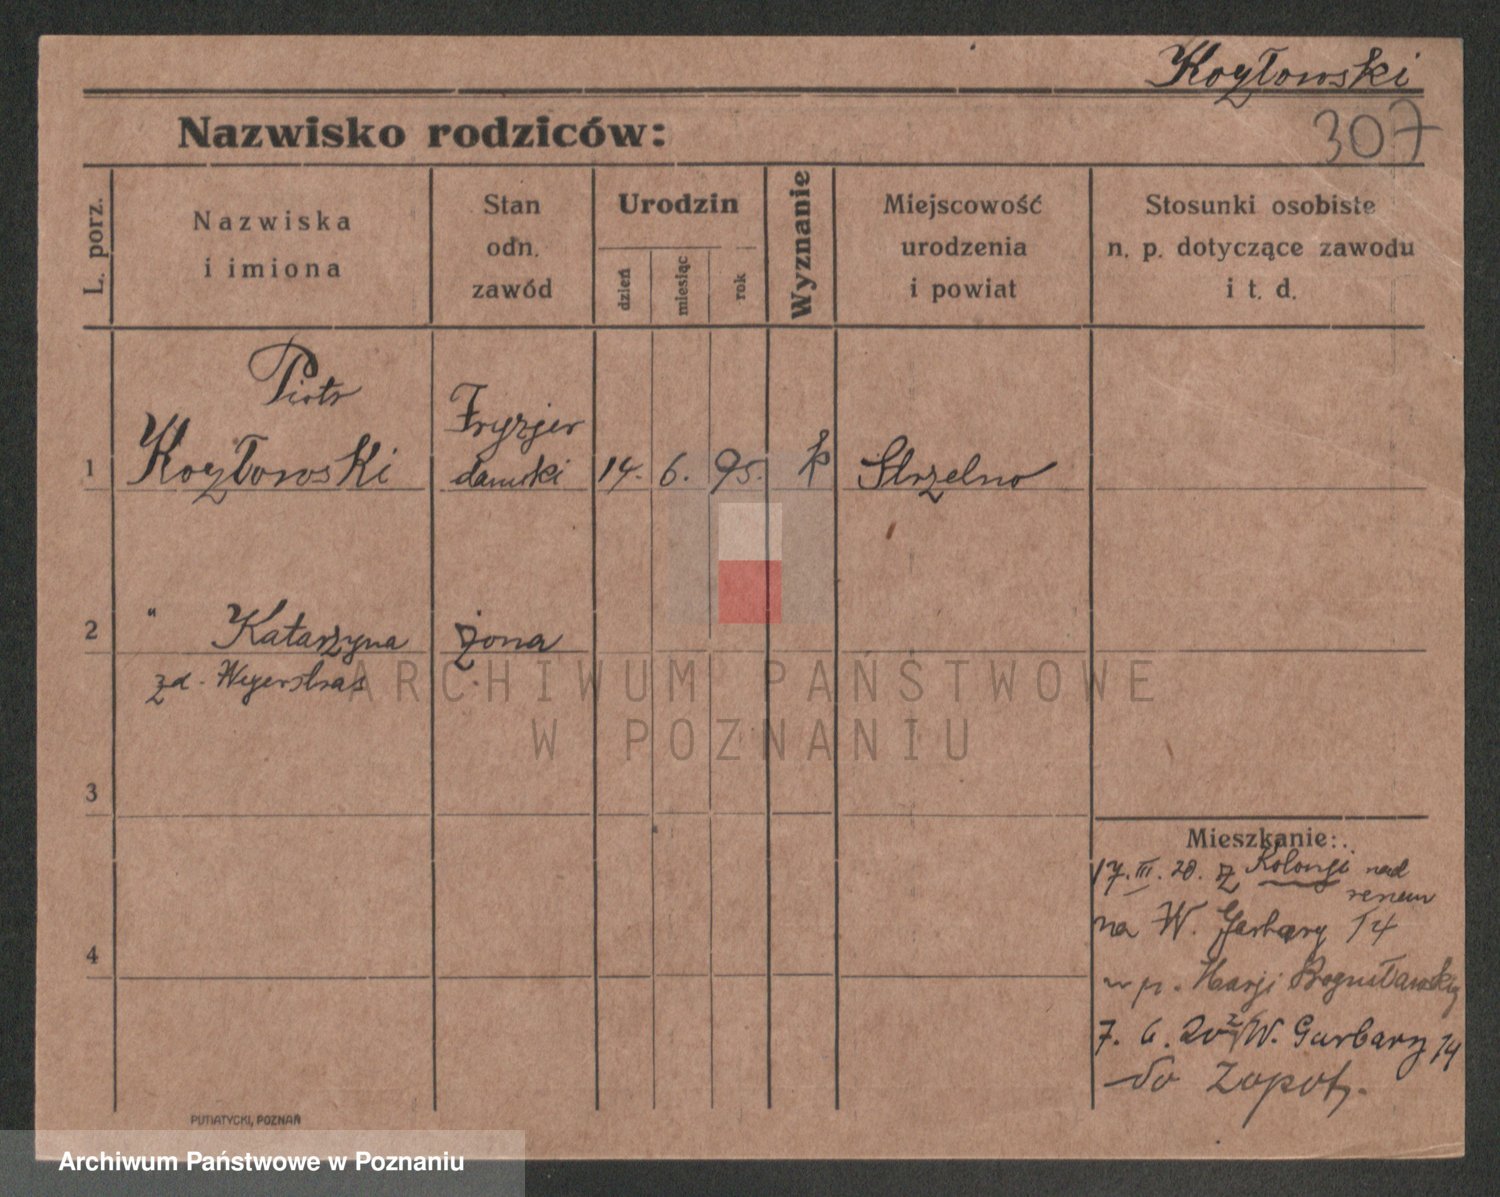 Kozłowski
307
Nazwisko rodziców:
L. porz.
Nazwiska
i imiona
Stan
odn.
zawód
Urodzin
dzień
miesiąc
rok
Wyznanie
Miejscowość
urodzenia
i powiat
Stosunki osobiste
n. p. dotyczące zawodu
i t. d.
1
Piotr
Kozłowski
Fryzjer
damski
14. 6. 95.
k
Strzelno
2
" Katarzyna
żona
zd. Weyerstras
3
4
Mieszkanie:
17. III. 20. z Kolonji nad
renem
na W. Garbary 14
u p. Marji Bogusławskiej
7. 6. 20 z W. Garbary 14
do Zopot.
PUTIATYCKI, POZNAŃ
ARCHIWUM PAŃSTWOWE
W POZNANIU
Archiwum Państwowe w Poznaniu